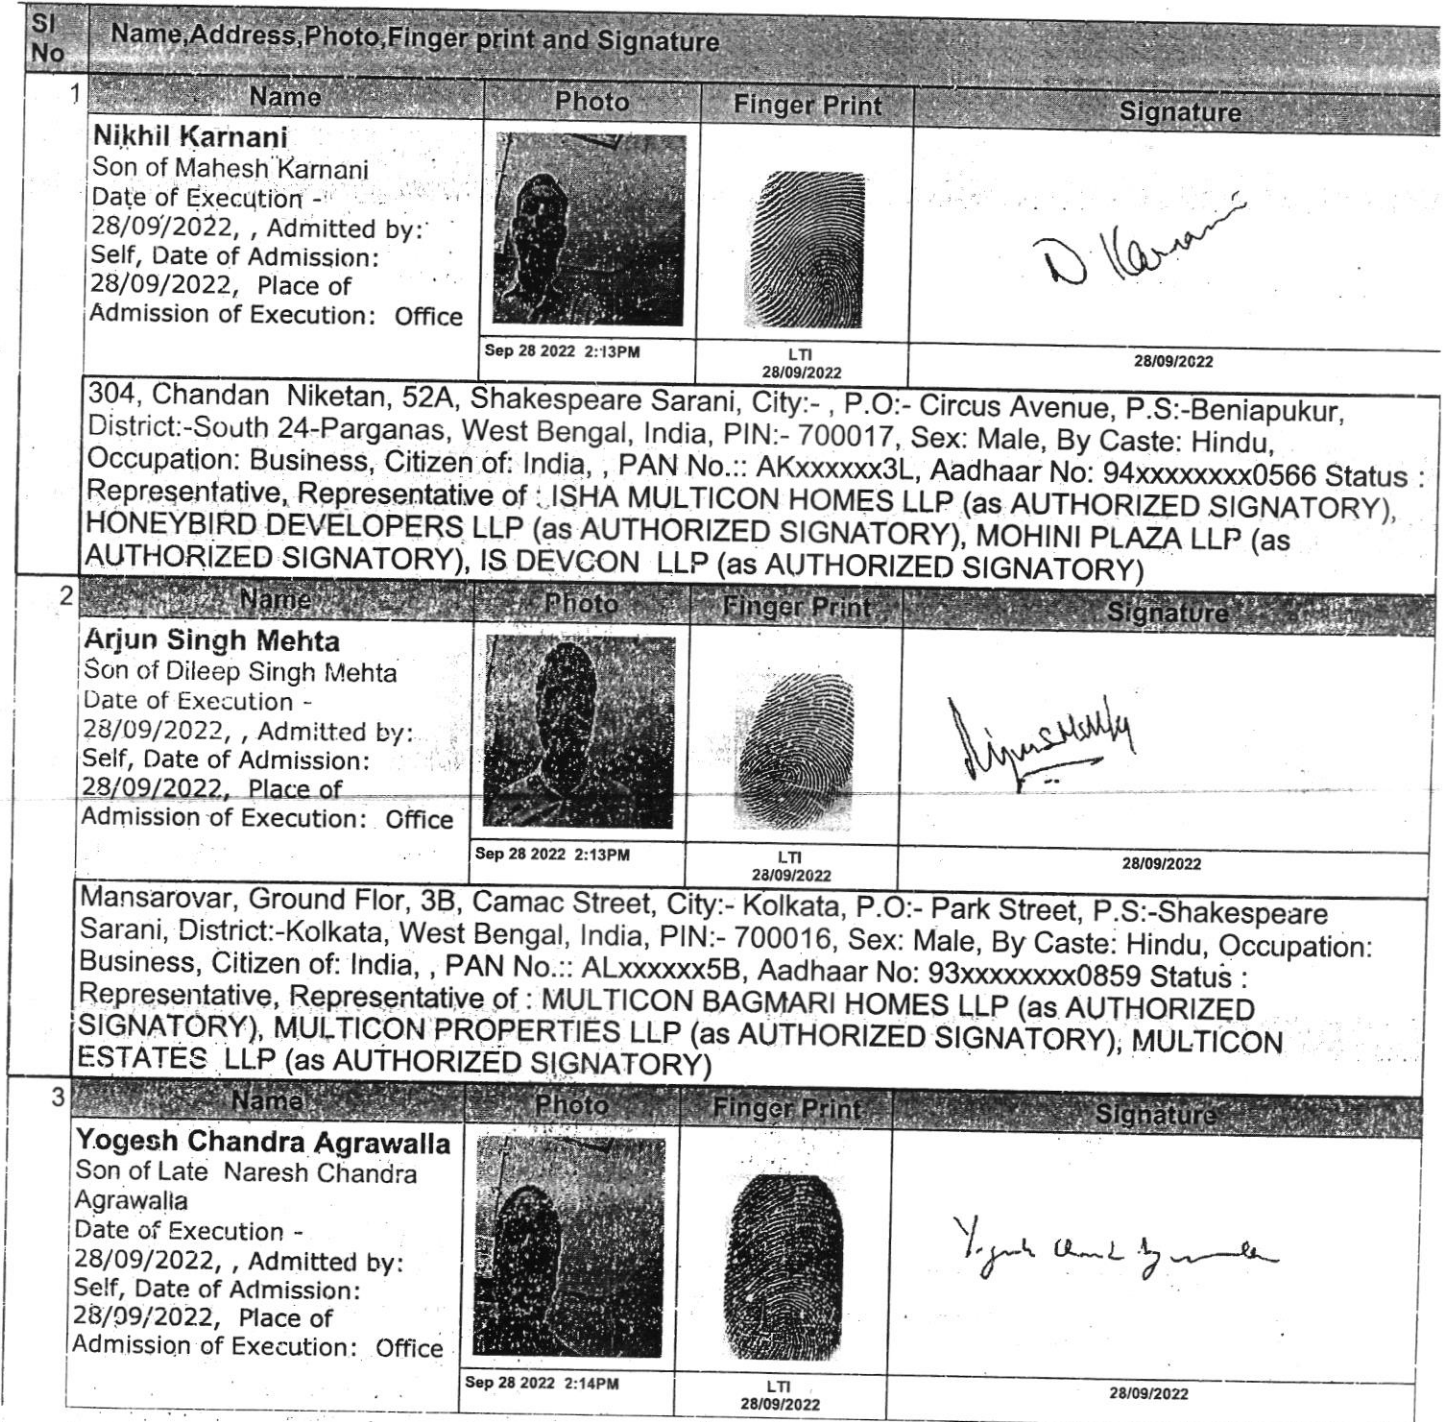 Sl No
Name,Address,Photo,Finger print and Signature
1
Name Photo Finger Print Signature
Nikhil Karnani
Son of Mahesh Karnani
Date of Execution -
28/09/2022, , Admitted by:
Self, Date of Admission:
28/09/2022, Place of
Admission of Execution: Office
N Karnani
Sep 28 2022 2:13PM
LTI
28/09/2022
28/09/2022
304, Chandan Niketan, 52A, Shakespeare Sarani, City:- , P.O:- Circus Avenue, P.S:-Beniapukur,
District:-South 24-Parganas, West Bengal, India, PIN:- 700017, Sex: Male, By Caste: Hindu,
Occupation: Business, Citizen of: India, , PAN No.:: AKxxxxxx3L, Aadhaar No: 94xxxxxxxx0566 Status :
Representative, Representative of : ISHA MULTICON HOMES LLP (as AUTHORIZED SIGNATORY),
HONEYBIRD DEVELOPERS LLP (as AUTHORIZED SIGNATORY), MOHINI PLAZA LLP (as
AUTHORIZED SIGNATORY), IS DEVCON LLP (as AUTHORIZED SIGNATORY)
2
Name Photo Finger Print Signature
Arjun Singh Mehta
Son of Dileep Singh Mehta
Date of Execution -
28/09/2022, , Admitted by:
Self, Date of Admission:
28/09/2022, Place of
Admission of Execution: Office
Sep 28 2022 2:13PM
LTI
28/09/2022
28/09/2022
Mansarovar, Ground Flor, 3B, Camac Street, City:- Kolkata, P.O:- Park Street, P.S:-Shakespeare
Sarani, District:-Kolkata, West Bengal, India, PIN:- 700016, Sex: Male, By Caste: Hindu, Occupation:
Business, Citizen of: India, , PAN No.:: ALxxxxxx5B, Aadhaar No: 93xxxxxxxx0859 Status :
Representative, Representative of : MULTICON BAGMARI HOMES LLP (as AUTHORIZED
SIGNATORY), MULTICON PROPERTIES LLP (as AUTHORIZED SIGNATORY), MULTICON
ESTATES LLP (as AUTHORIZED SIGNATORY)
3
Name Photo Finger Print Signature
Yogesh Chandra Agrawalla
Son of Late Naresh Chandra
Agrawalla
Date of Execution -
28/09/2022, , Admitted by:
Self, Date of Admission:
28/09/2022, Place of
Admission of Execution: Office
Sep 28 2022 2:14PM
LTI
28/09/2022
28/09/2022